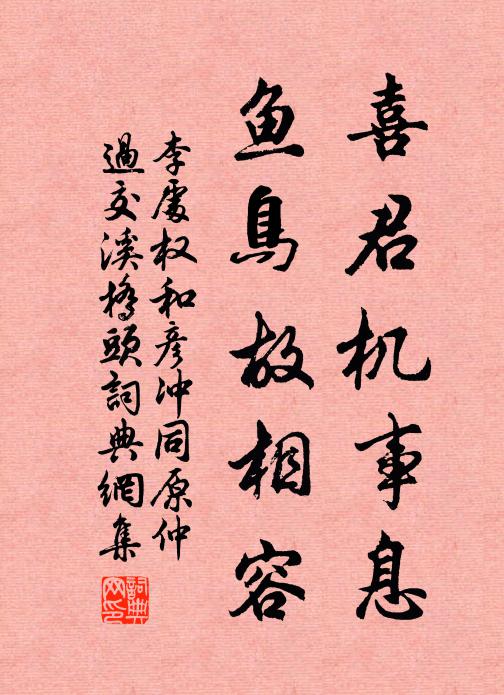 喜君机事息
鱼鳥故相容
李處权和彦冲同原仲
過交溪橋頭詞典網集
詞典網印